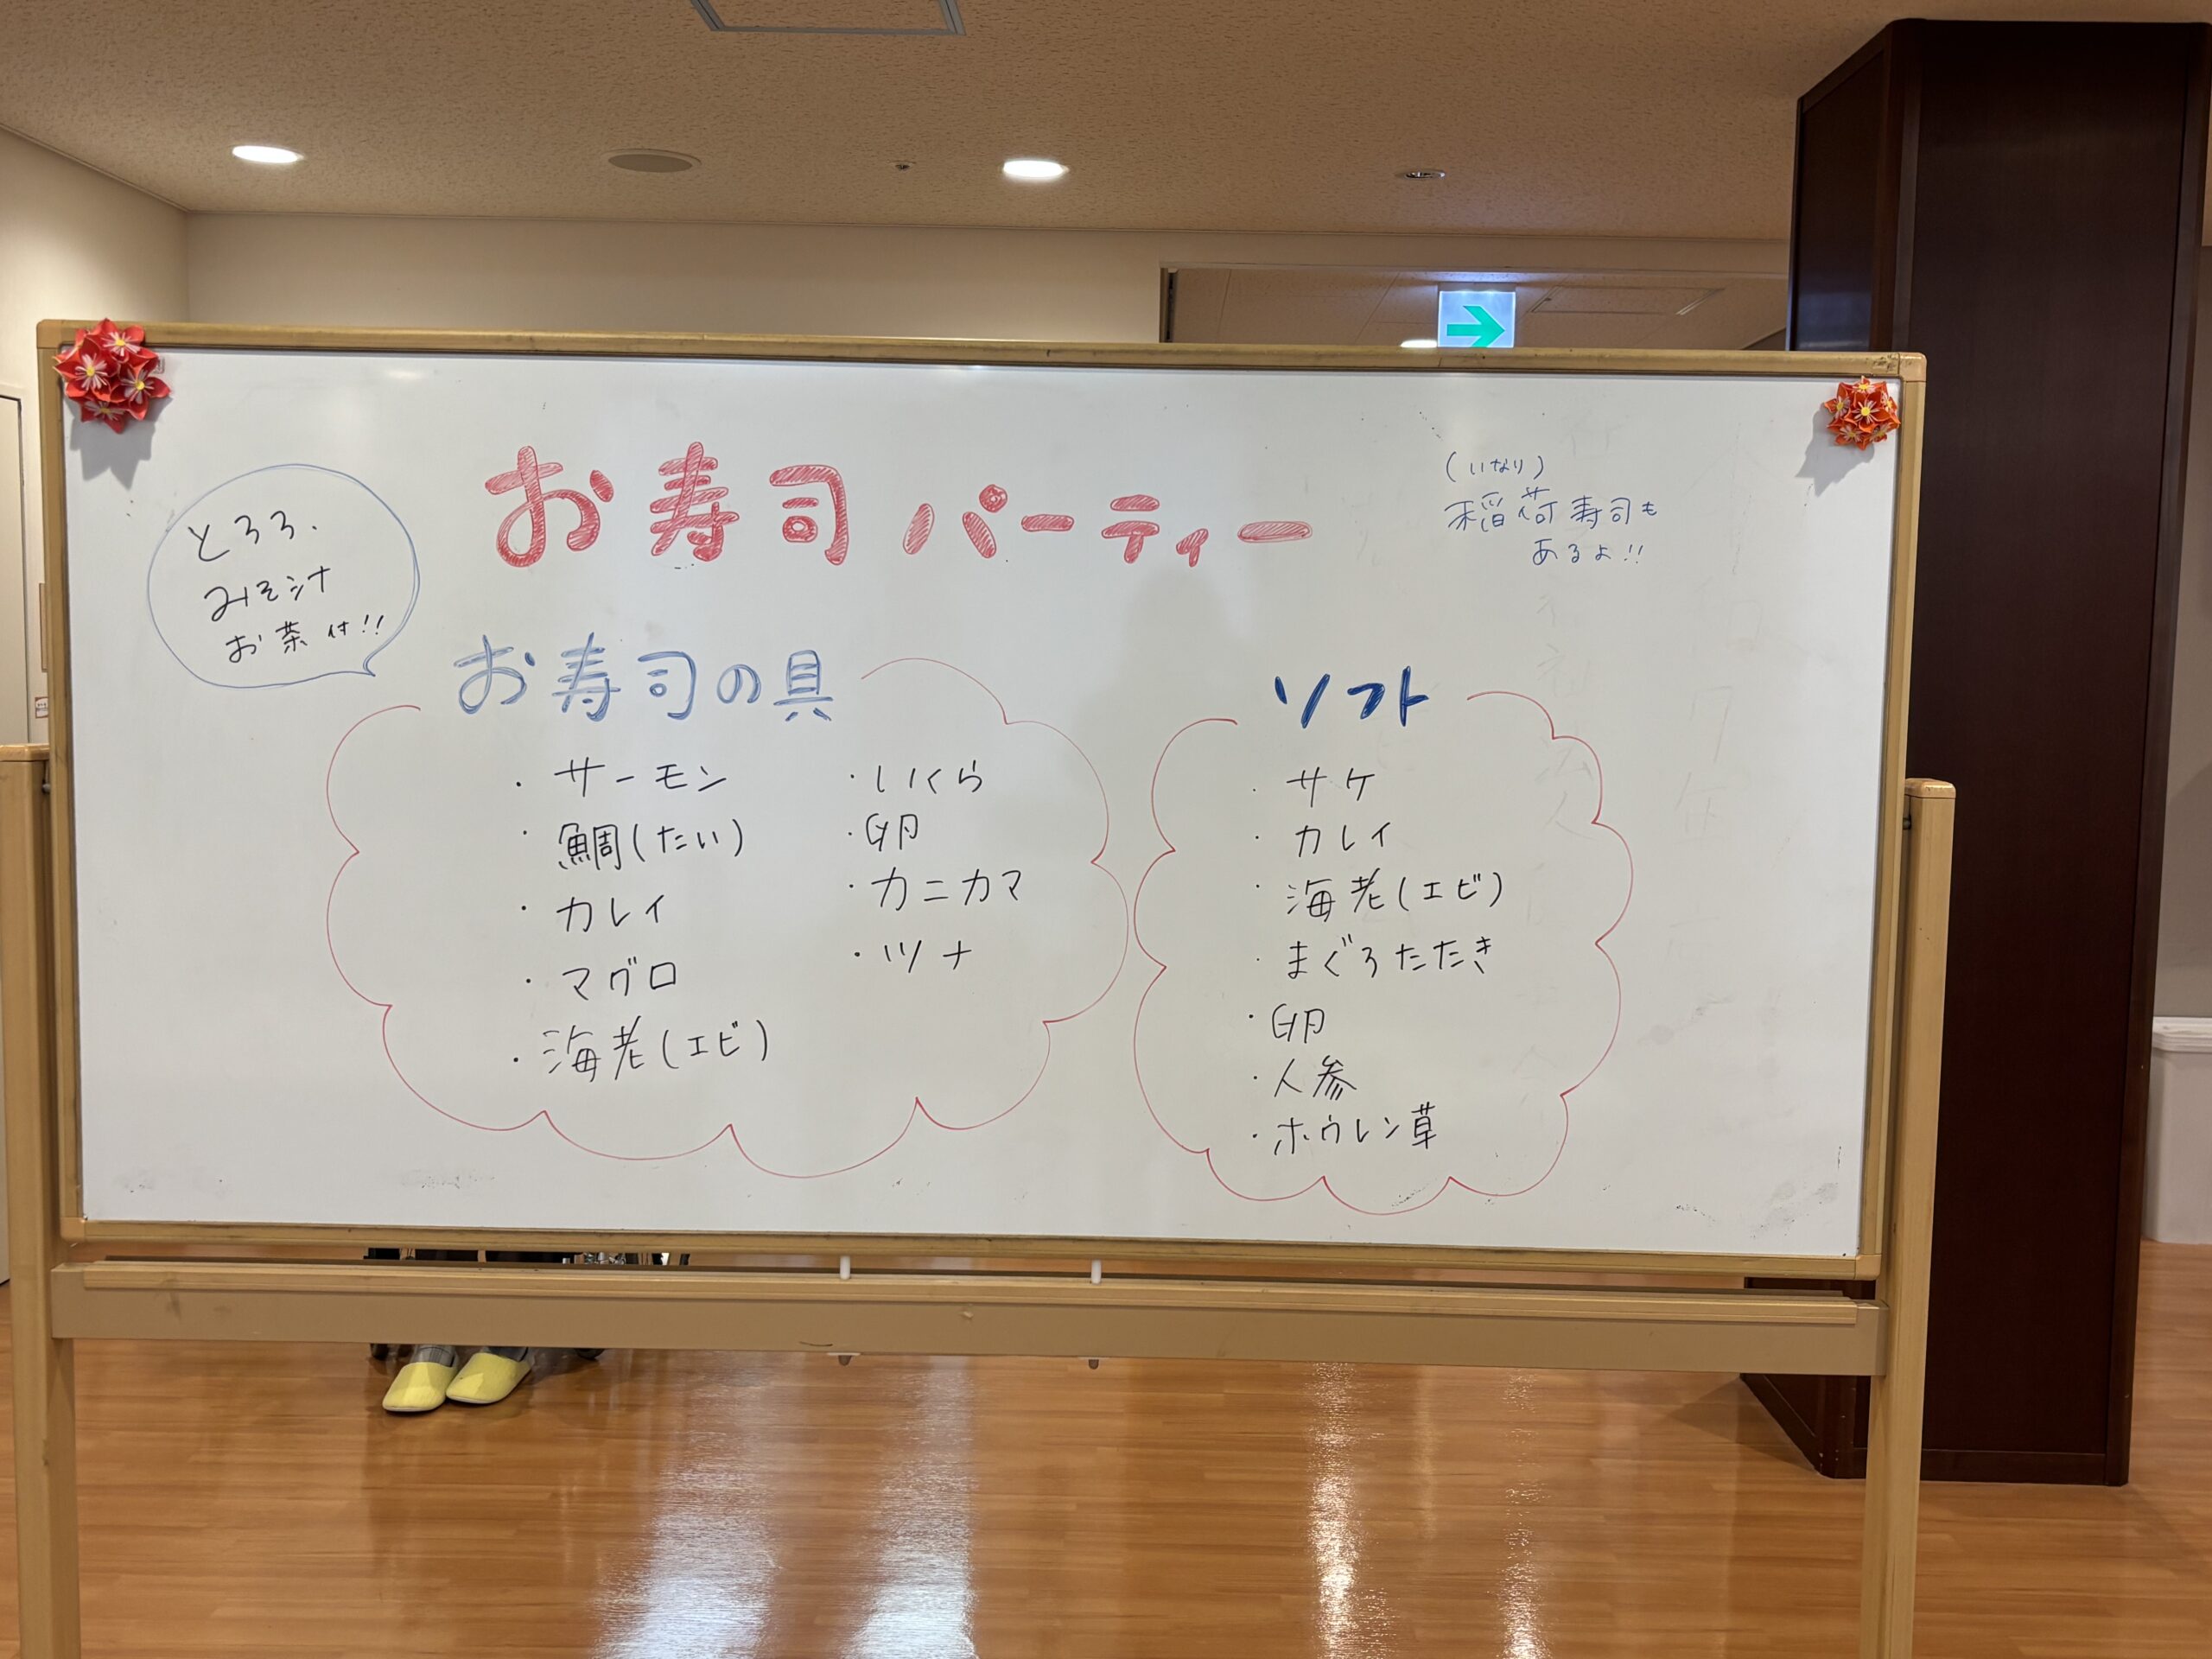 お寿司パーティー
(いなり)
稲荷寿司も
あるよ!!
とろろ、
みそ汁
お茶付!!
お寿司の具
・サーモン
・鯛(たい)
・カレイ
・マグロ
・海老(エビ)
・いくら
・卵
・カニカマ
・ツナ
ソフト
・サケ
・カレイ
・海老(エビ)
・まぐろたたき
・卵
・人参
・ホウレン草